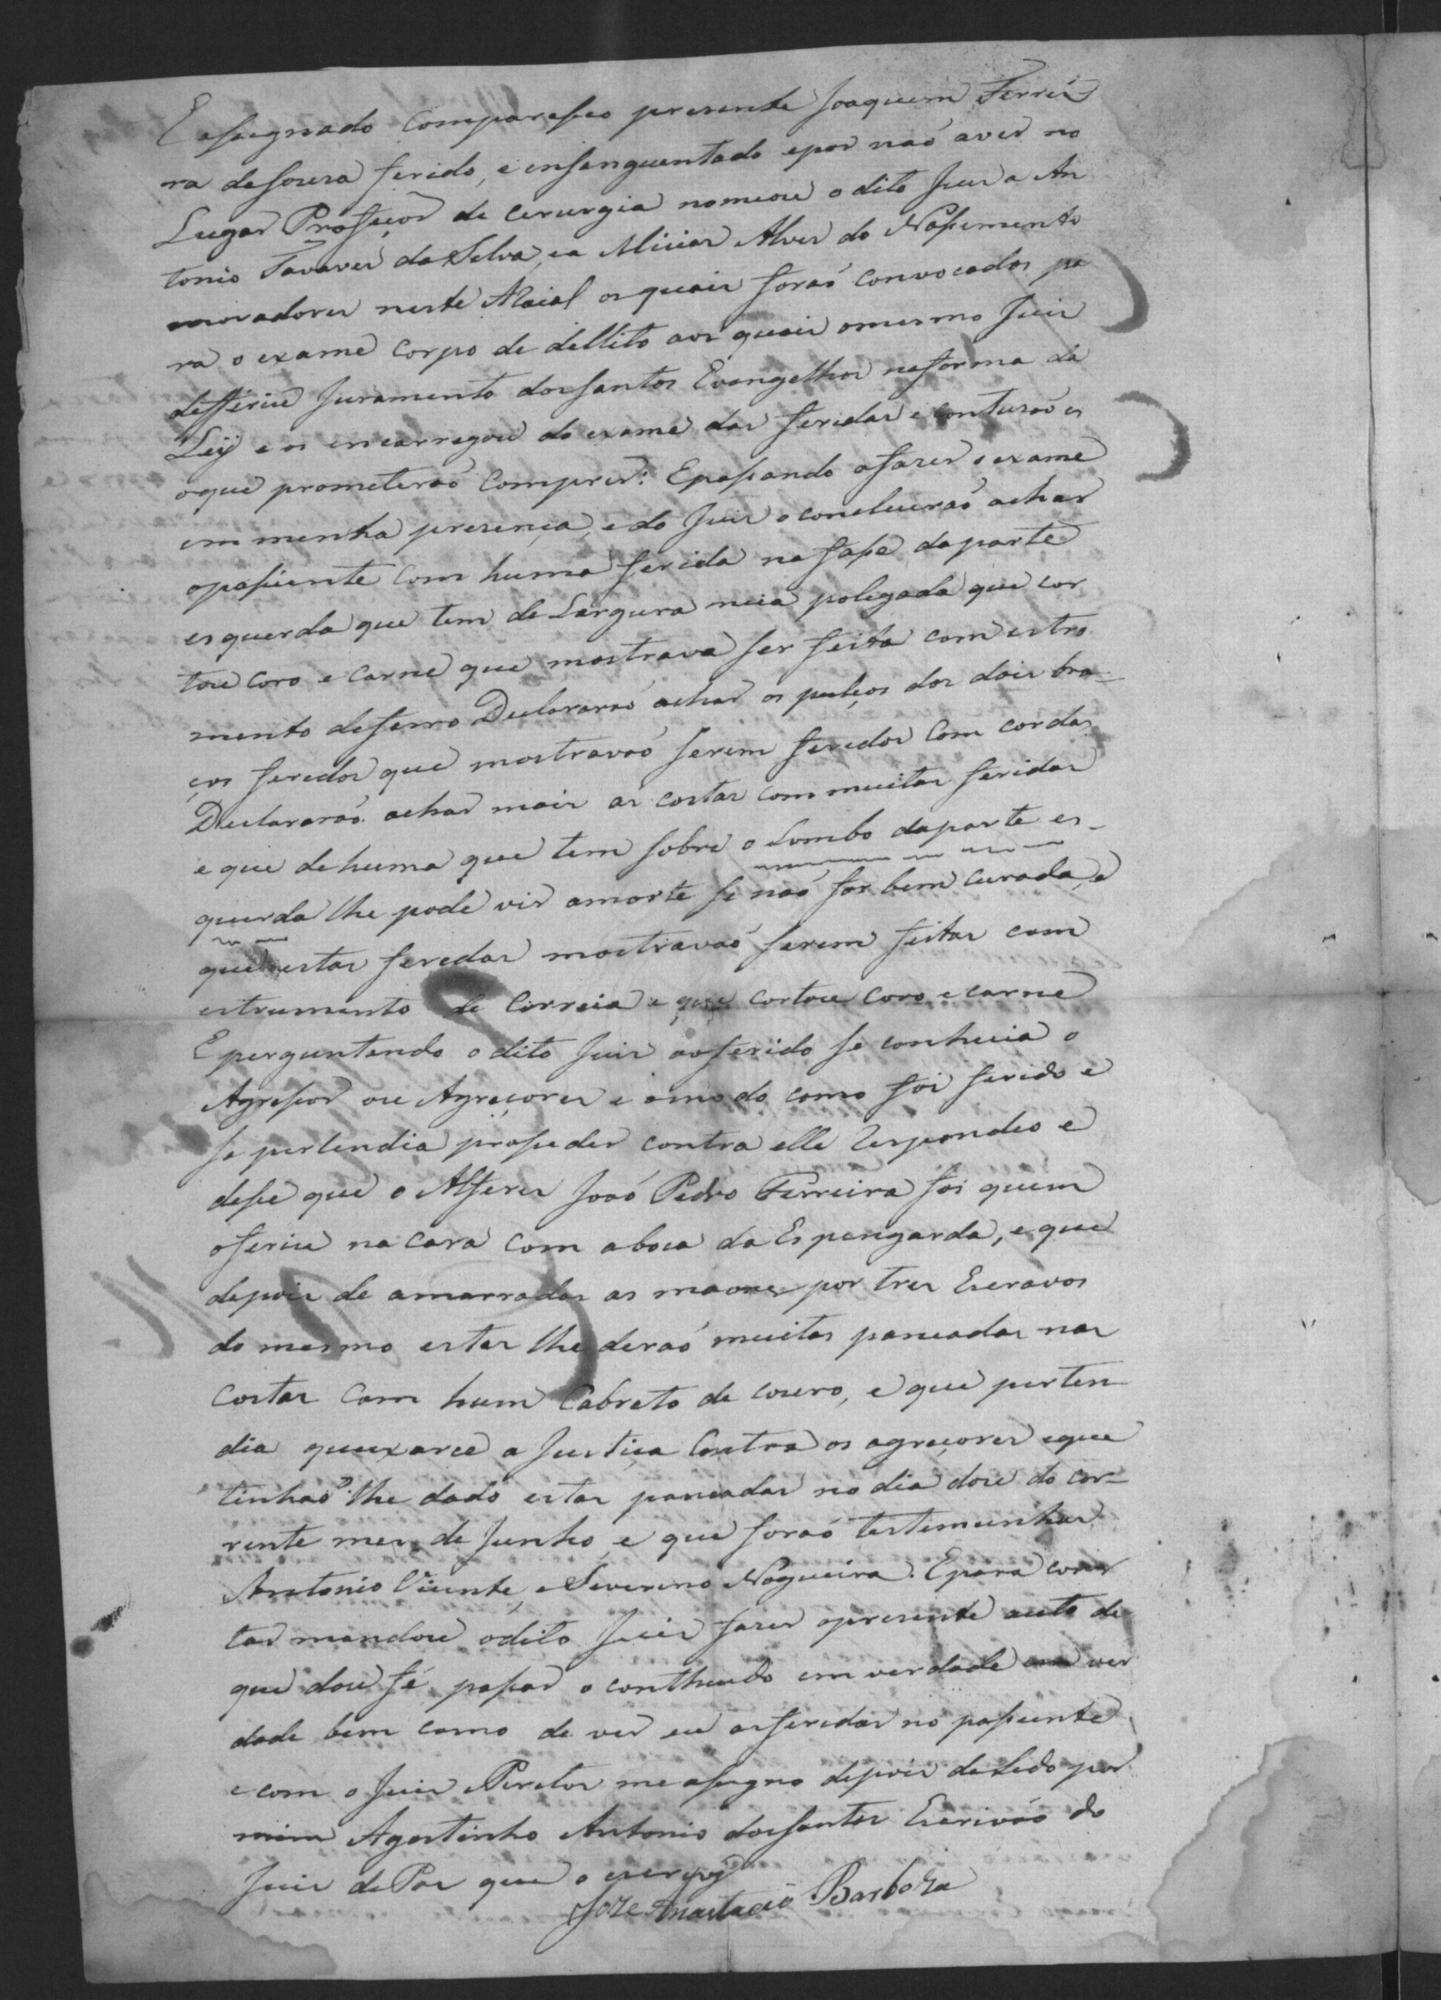 E assignado compareseo presente Joaquim Ferrei
ra deSouza ferido, e insanguentado epor naó aver no
Lugar Profeçor de cerurgia nomeou o dito Juiz a An
tonio Tavares daSilva, ea Alves do Nassimento
moradores neste os quais foraó convocados pa
ra o exame corpo de dellito aos quais omesmo Juiz
defferiu Juramento dosSantos Evangelhos naforma da
Ley e os encarregou do exame das feridas e contusoés
oque prometeraó Comprir: Epassando afazer o exame
em menha presença, e do Juiz o concluiraó achar
opassiente Com huma ferida na fasse daparte
esquerda que tem de Largura meia polegada que cor
tou coro e carne que mostrava ser feita com estro
mento deferro Declararaó achar os pulços dos dois bra-
ços feredos que mostravaó serem feredos Com cordas
Declararaó achar mais as costas com muitas feridas
e que de huma que tem sobre o Lombo daparte es-
querda lhe pode vir amorte se naó for bem curada, e
que estas feredas mostravaó serem feitas com
estrumento de Correia e que cortou coro e carne
Eperguntando o dito Juiz aoferido se conhecia o
Agressor ou Agreçores e omodo como foi ferido e
se pertendia proseder contra elle Respondeo e
desse que o Alferes Joaó Pedro Ferreira foi quem
oferiu na cara com aboca da Espingarda, e que
depois de amarradas as maons por tres Escravos
do mesmo estes lhe deraó muitas pancadas nas
Costas Com hum Cabresto de couro, e que perten-
dia queixarce a Justiça Contra os agreçores eque
tinhaó lhe dado estas pancadas no dia doze do cor-
rente mes de Junho, e que foraó testemunhas
Antonio Vicente, e Severino Nogueira. Epara cons
tar mandou odito Juiz fazer opresente auto de
que dou fé passar o conthiudo em verdade em ver
dade bem como de ver eu asferidas no passiente
e com o Juiz e Peretos me assigno depois de Lido por
mim Agostinho Antonio dosSantos Escrivaó do
Juiz dePas que o escrevy
Joze Anastacio Barboza